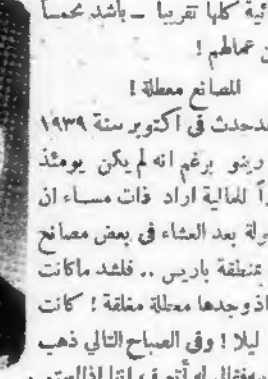 ئية كلها تقريبا – باشد تحمسا
ن عماطم !
المصانع معطلة !
حدث فى اكتوبر سنة ١٩٣٩
رينو برغم انه لم يكن يومئذ
راً للمالية اراد ذات مساء ان
ولة بعد العشاء فى بعض مصانع
بمنطقة باريس .. فلشد ماكانت
اذ وجدها معطلة مغلقة ! كانت
ليلا ! وفى الصباح التالي ذهب